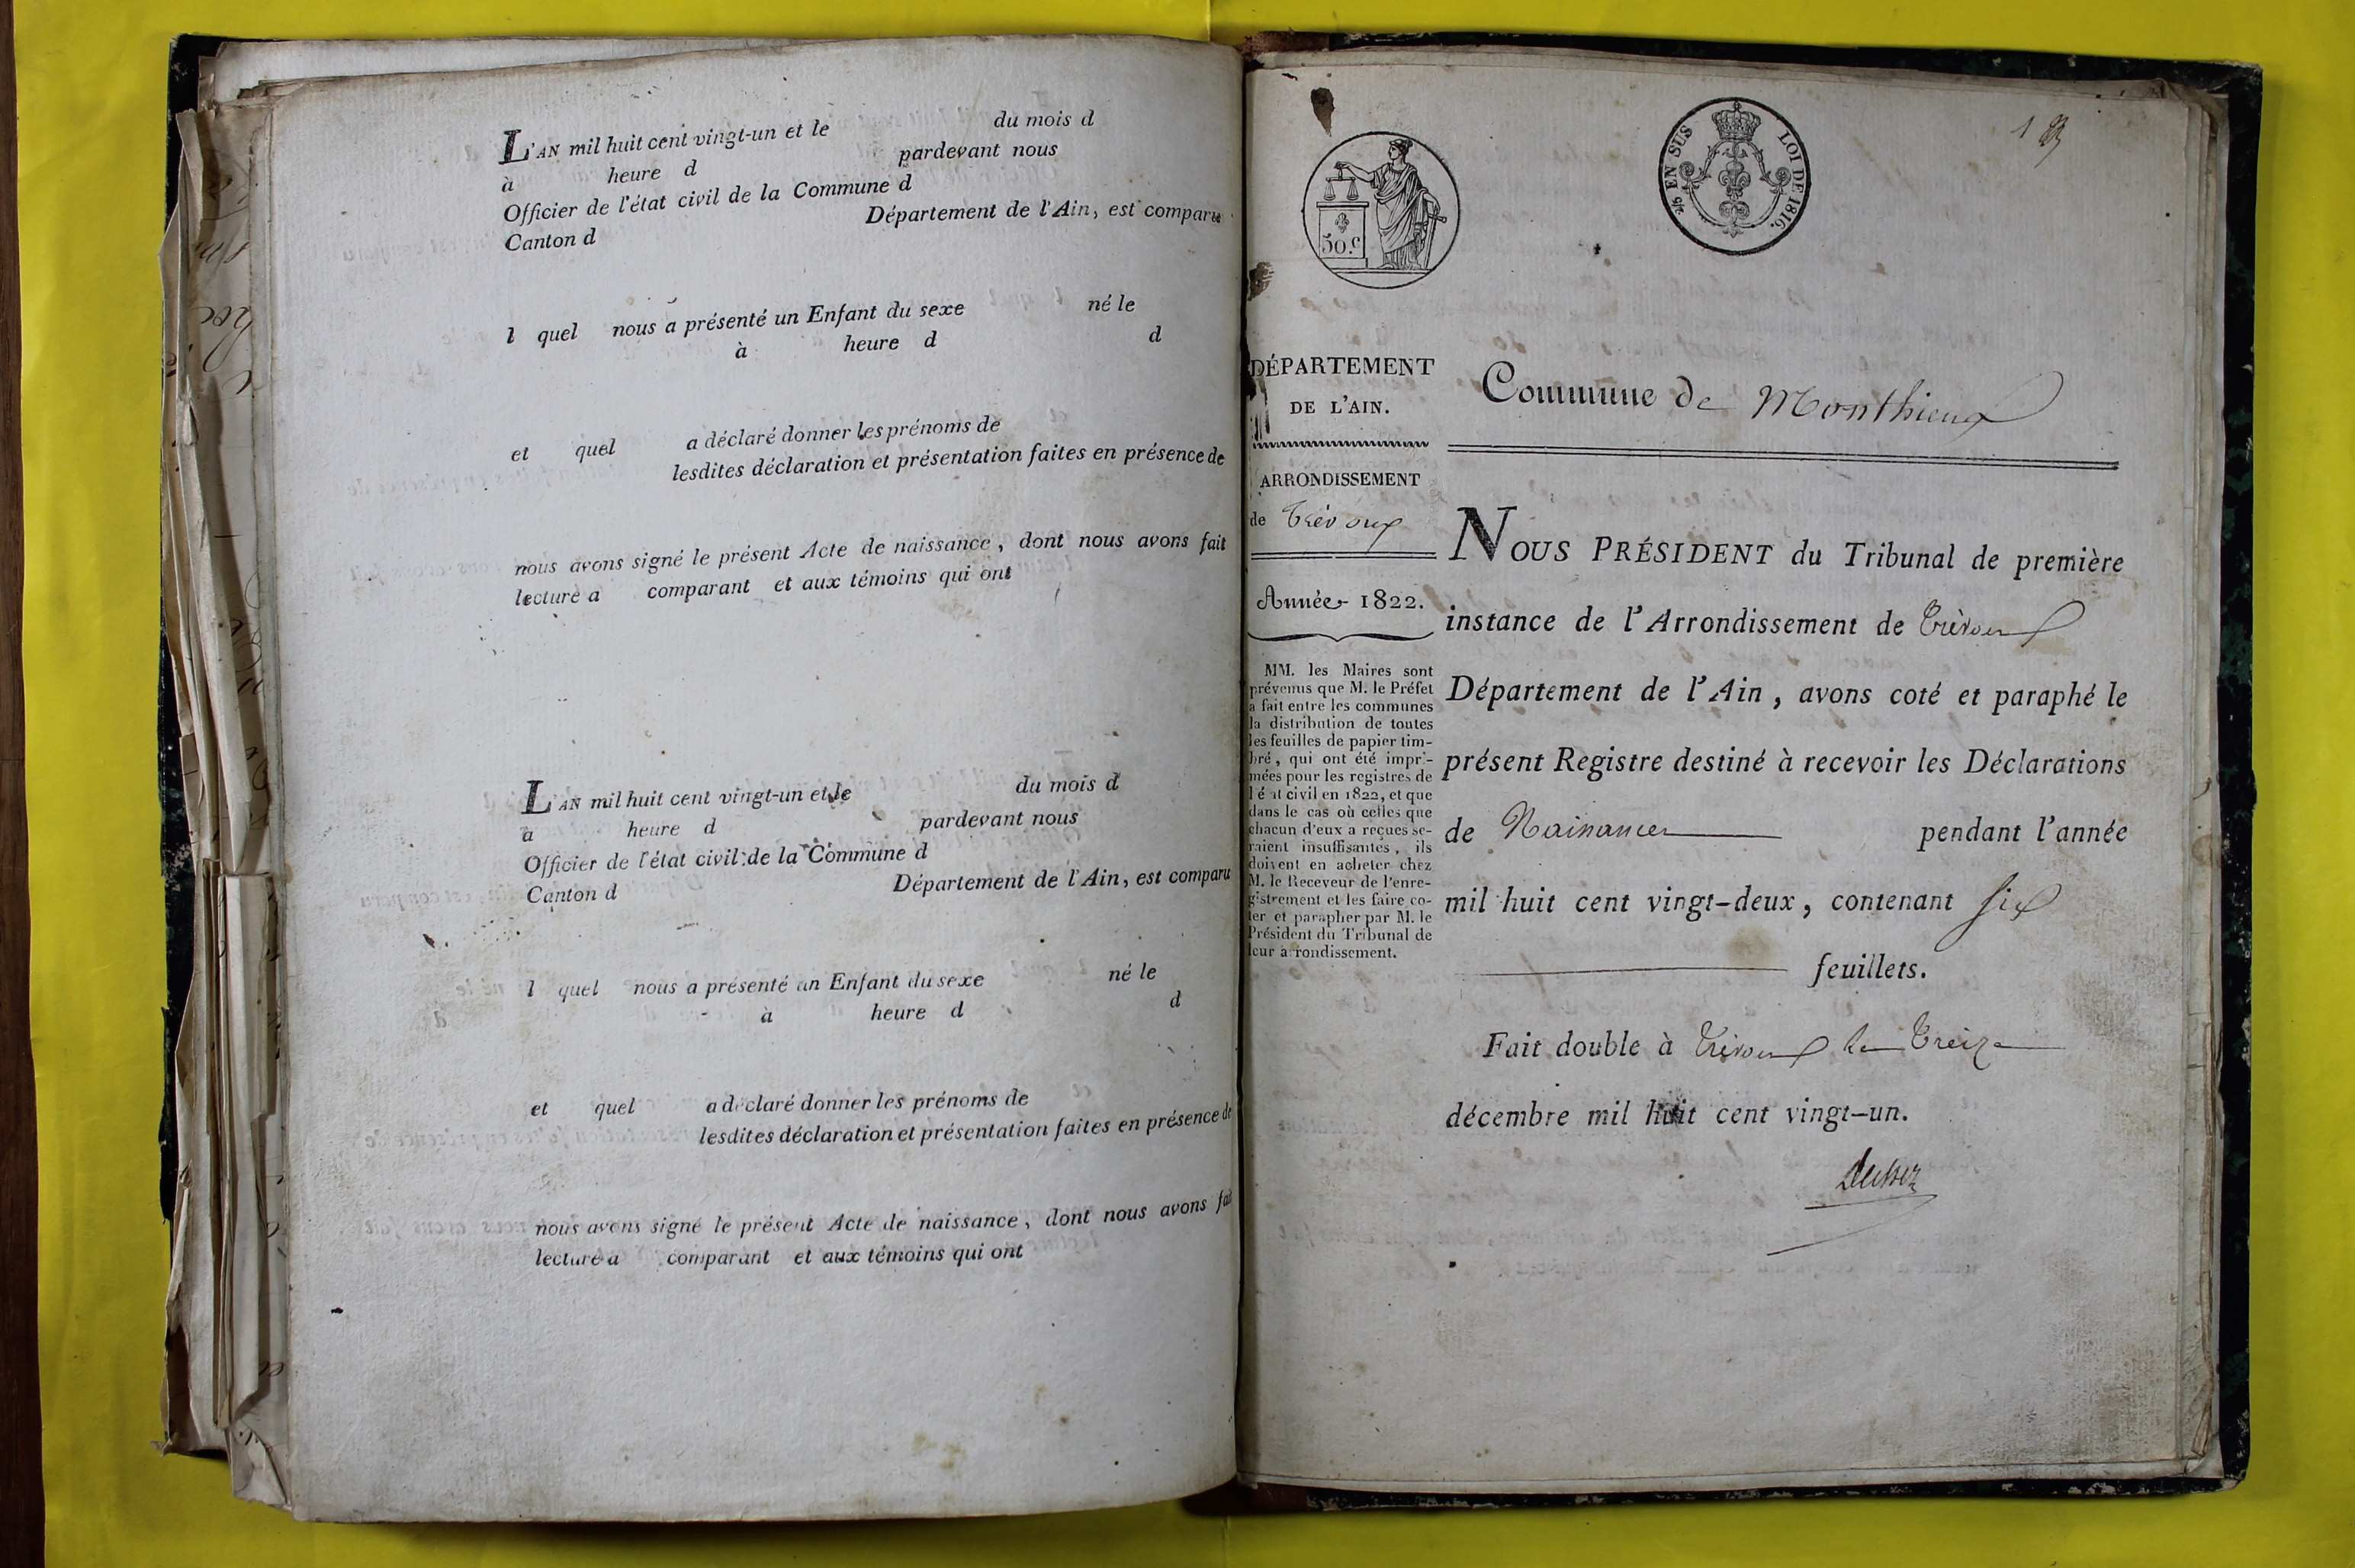 L'AN mil huit cent vingt-un et le du mois d
à heure d pardevant nous
Officier de l'état civil de la Commune d
Canton d Département de l'Ain, est comparu
l quel nous a présenté un Enfant du sexe né le
à heure d d
et quel a déclaré donner les prénoms de
lesdites déclaration et présentation faites en présence de
nous avons signé le présent Acte de naissance, dont nous avons fait
lecture a comparant et aux témoins qui ont
L'AN mil huit cent vingt-un et le du mois d
à heure d pardevant nous
Officier de l'état civil de la Commune d
Canton d Département de l'Ain, est comparu
l quel nous a présenté un Enfant du sexe né le
à heure d d
et quel a déclaré donner les prénoms de
lesdites déclaration et présentation faites en présence de
nous avons signé le présent Acte de naissance, dont nous avons fait
lecture a comparant et aux témoins qui ont
50.c
2/5 EN SUS LOI DE 1816.
1
DÉPARTEMENT
DE L'AIN.
ARRONDISSEMENT
de Trévoux
Année 1822.
MM. les Maires sont
prévenus que M. le Préfet
a fait entre les communes
la distribution de toutes
les feuilles de papier tim-
bré, qui ont été impri-
mées pour les registres de
l'état civil en 1822, et que
dans le cas où celles que
chacun d'eux a reçues se-
raient insuffisantes, ils
doivent en acheter chez
M. le Receveur de l'enre-
gistrement et les faire co-
ter et parapher par M. le
Président du Tribunal de
leur arrondissement.
Commune de Monthieux
NOUS PRÉSIDENT du Tribunal de première
instance de l'Arrondissement de Trévoux
Département de l'Ain, avons coté et paraphé le
présent Registre destiné à recevoir les Déclarations
de Naissances pendant l'année
mil huit cent vingt-deux, contenant Six
feuillets.
Fait double à Trévoux le Treize
décembre mil huit cent vingt-un.